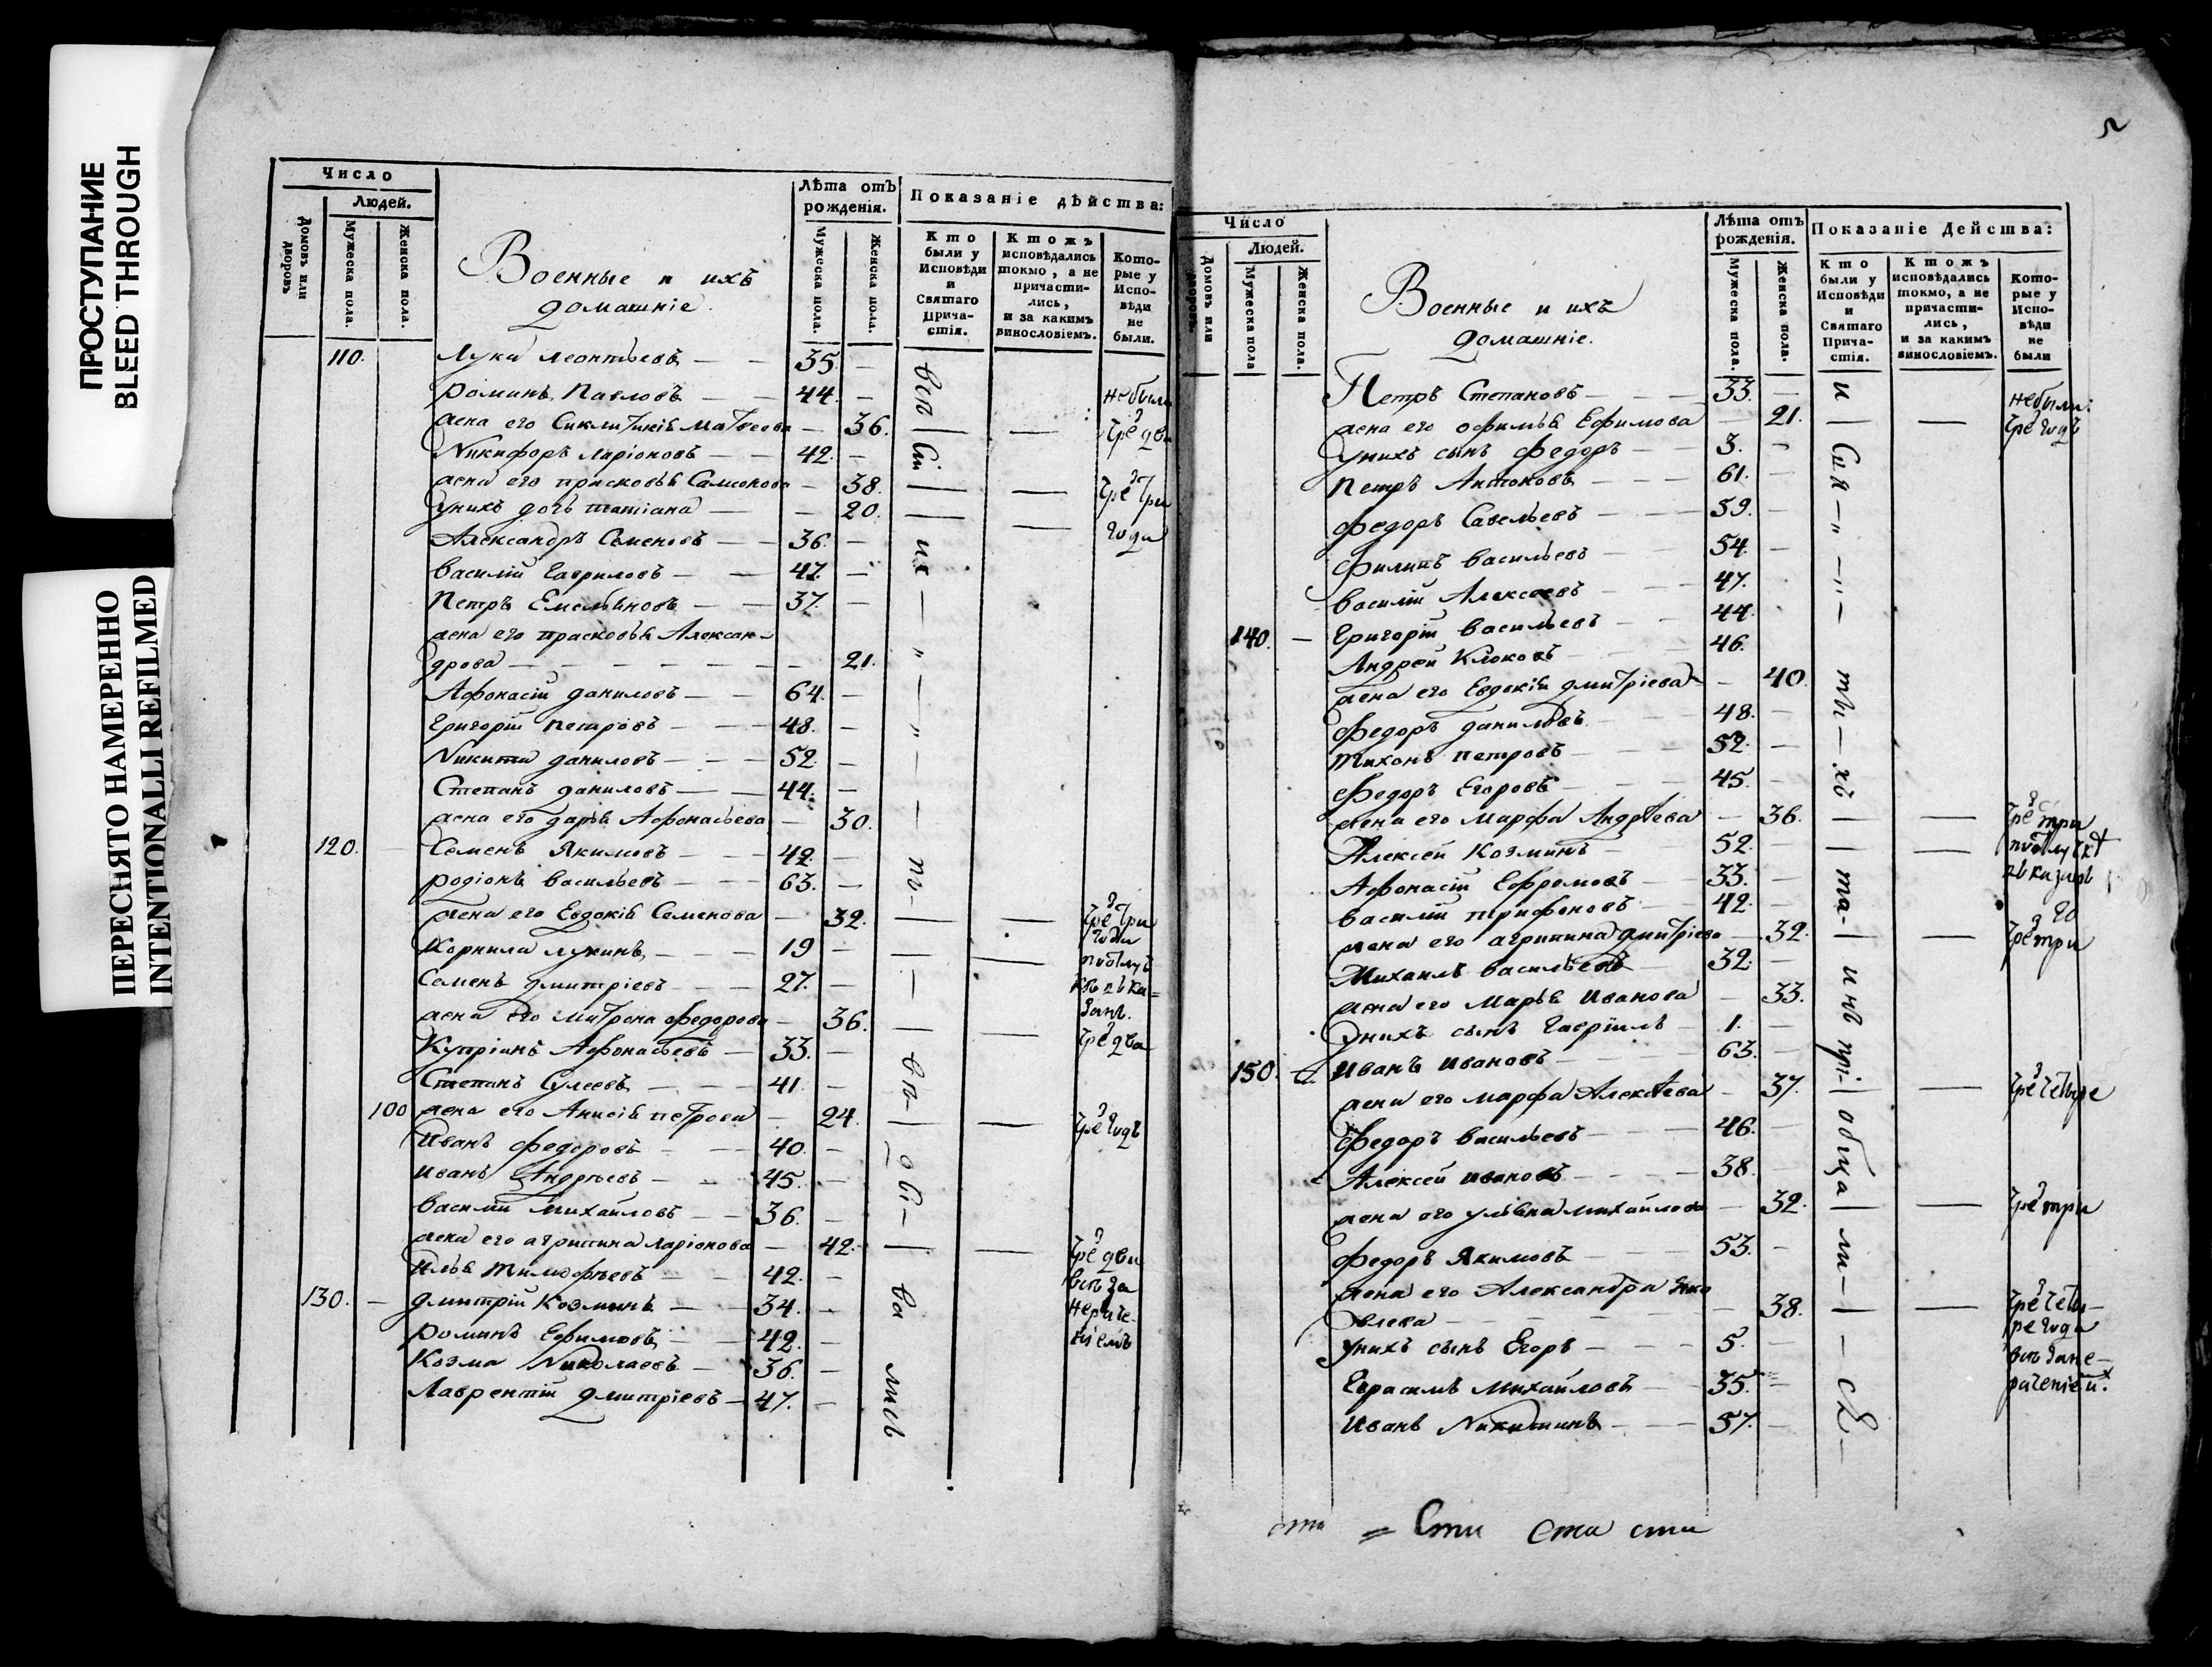 ПРОСТУПАНИЕ
BLEED THROUGH
ПЕРЕСНЯТО НАМЕРЕННО
INTENTIONALLI REFILMED
Число
Людей.
Домовъ или дворовъ
Мужеска пола.
Женска пола.
Военные и ихъ
домашніе.
Лѣта отъ рожденія.
Мужеска пола.
Женска пола.
Показаніе дѣйства:
Кто были у Исповѣди и Святаго Прича-стія.
Ктожъ исповѣдались токмо, а не причасти-лись, и за какимъ винословіемъ.
Кото-рые у Испо-вѣди не были.
110. Лука Леонтьевъ — 35. —
Романъ Павловъ — 44. — небыли
жена его Матвеева — 36. — чрез два
Никифоръ Ларіоновъ — 42. —
жена его Прасковья Самсонова — 38. — чрез три
унихъ дочь татіана — 20. — года
Александръ Семеновъ — 36. —
василій Гавриловъ — 47. —
Петръ Емельяновъ — 37. —
жена его прасковья Алексан-
дрова — 21.
Афонасій даниловъ — 64. —
Григорій петровъ — 48. —
Никита даниловъ — 52. —
Степанъ даниловъ — 44. —
жена его дарья Афонасьева — 30.
120. Семенъ Якимовъ — 42. —
родіонъ васильевъ — 63. —
жена его Евдокія Семенова — 32. — чрез три года
Корнила лукинъ — 19 —
Семенъ дмитріевъ — 27. —
жена его матрона федорова — 36. —
Купріанъ Афонасьевъ — 33. — чрез два
Степанъ — 41. —
100 жена его Анисія петрова — 24. — чрез годъ
Иванъ федоровъ — 40. —
иванъ Андреевъ — 45. —
василій михайловъ — 36. —
жена его агрипина ларіонова — 42. — чрез два
Илья тимофеевъ — 42. —
130. — дмитрій козминъ — 34. —
романъ Ефимовъ — 42. —
Козма Николаевъ — 36. —
Лаврентій дмитріевъ — 47. —
Число
Людей.
Домовъ или дворовъ.
Мужеска пола
Женска пола.
Военные и ихъ
домашніе.
Лѣта отъ рожденія.
Мужеска пола.
Женска пола.
Показаніе Дейсшва:
Кто были у Исповѣди и Святаго Прича-стія.
Ктожъ исповѣдались токмо, а не причасти-лись, и за какимъ винословіемъ.
Кото-рые у Испо-вѣди не были
Петръ Степановъ — 33. — небыли:
жена его офимья Ефимова — 21. — чрез годъ
унихъ сынъ федоръ — 3. —
Петръ Антоновъ — 61. —
федоръ Савельевъ — 59. —
филипъ васильевъ — 54. —
василій Алексеевъ — 47.
140. — Григорій васильевъ — 44.
Андрей Клоковъ — 46.
жена его Евдокія дмитріева — 40.
федоръ даниловъ — 48. —
тихонъ петровъ — 52. —
федоръ Егоровъ — 45. —
жена его марфа Андреева — 36. — чрез три
Алексей Козминъ — 52. —
Афонасій Ефремовъ — 33. —
василій трифоновъ — 42. —
жена его агрипина дмитріева — 32. — чрез три
Михаилъ васильевъ — 32. —
жена его марья иванова — 33.
унихъ сынъ Гавріилъ — 1. —
150. иванъ ивановъ — 63. —
жена его марфа Алексеева — 37. — чрез четыре
федоръ васильевъ — 46. —
Алексей ивановъ — 38. —
жена его ульяна михайлова — 32. — чрез три
федоръ Якимовъ — 53. —
жена его Александра яко
влева — 38. — чрез четы-ре года
унихъ сынъ Егоръ — 5. —
Герасимъ михайловъ — 35. —
иванъ Никитинъ — 57. —